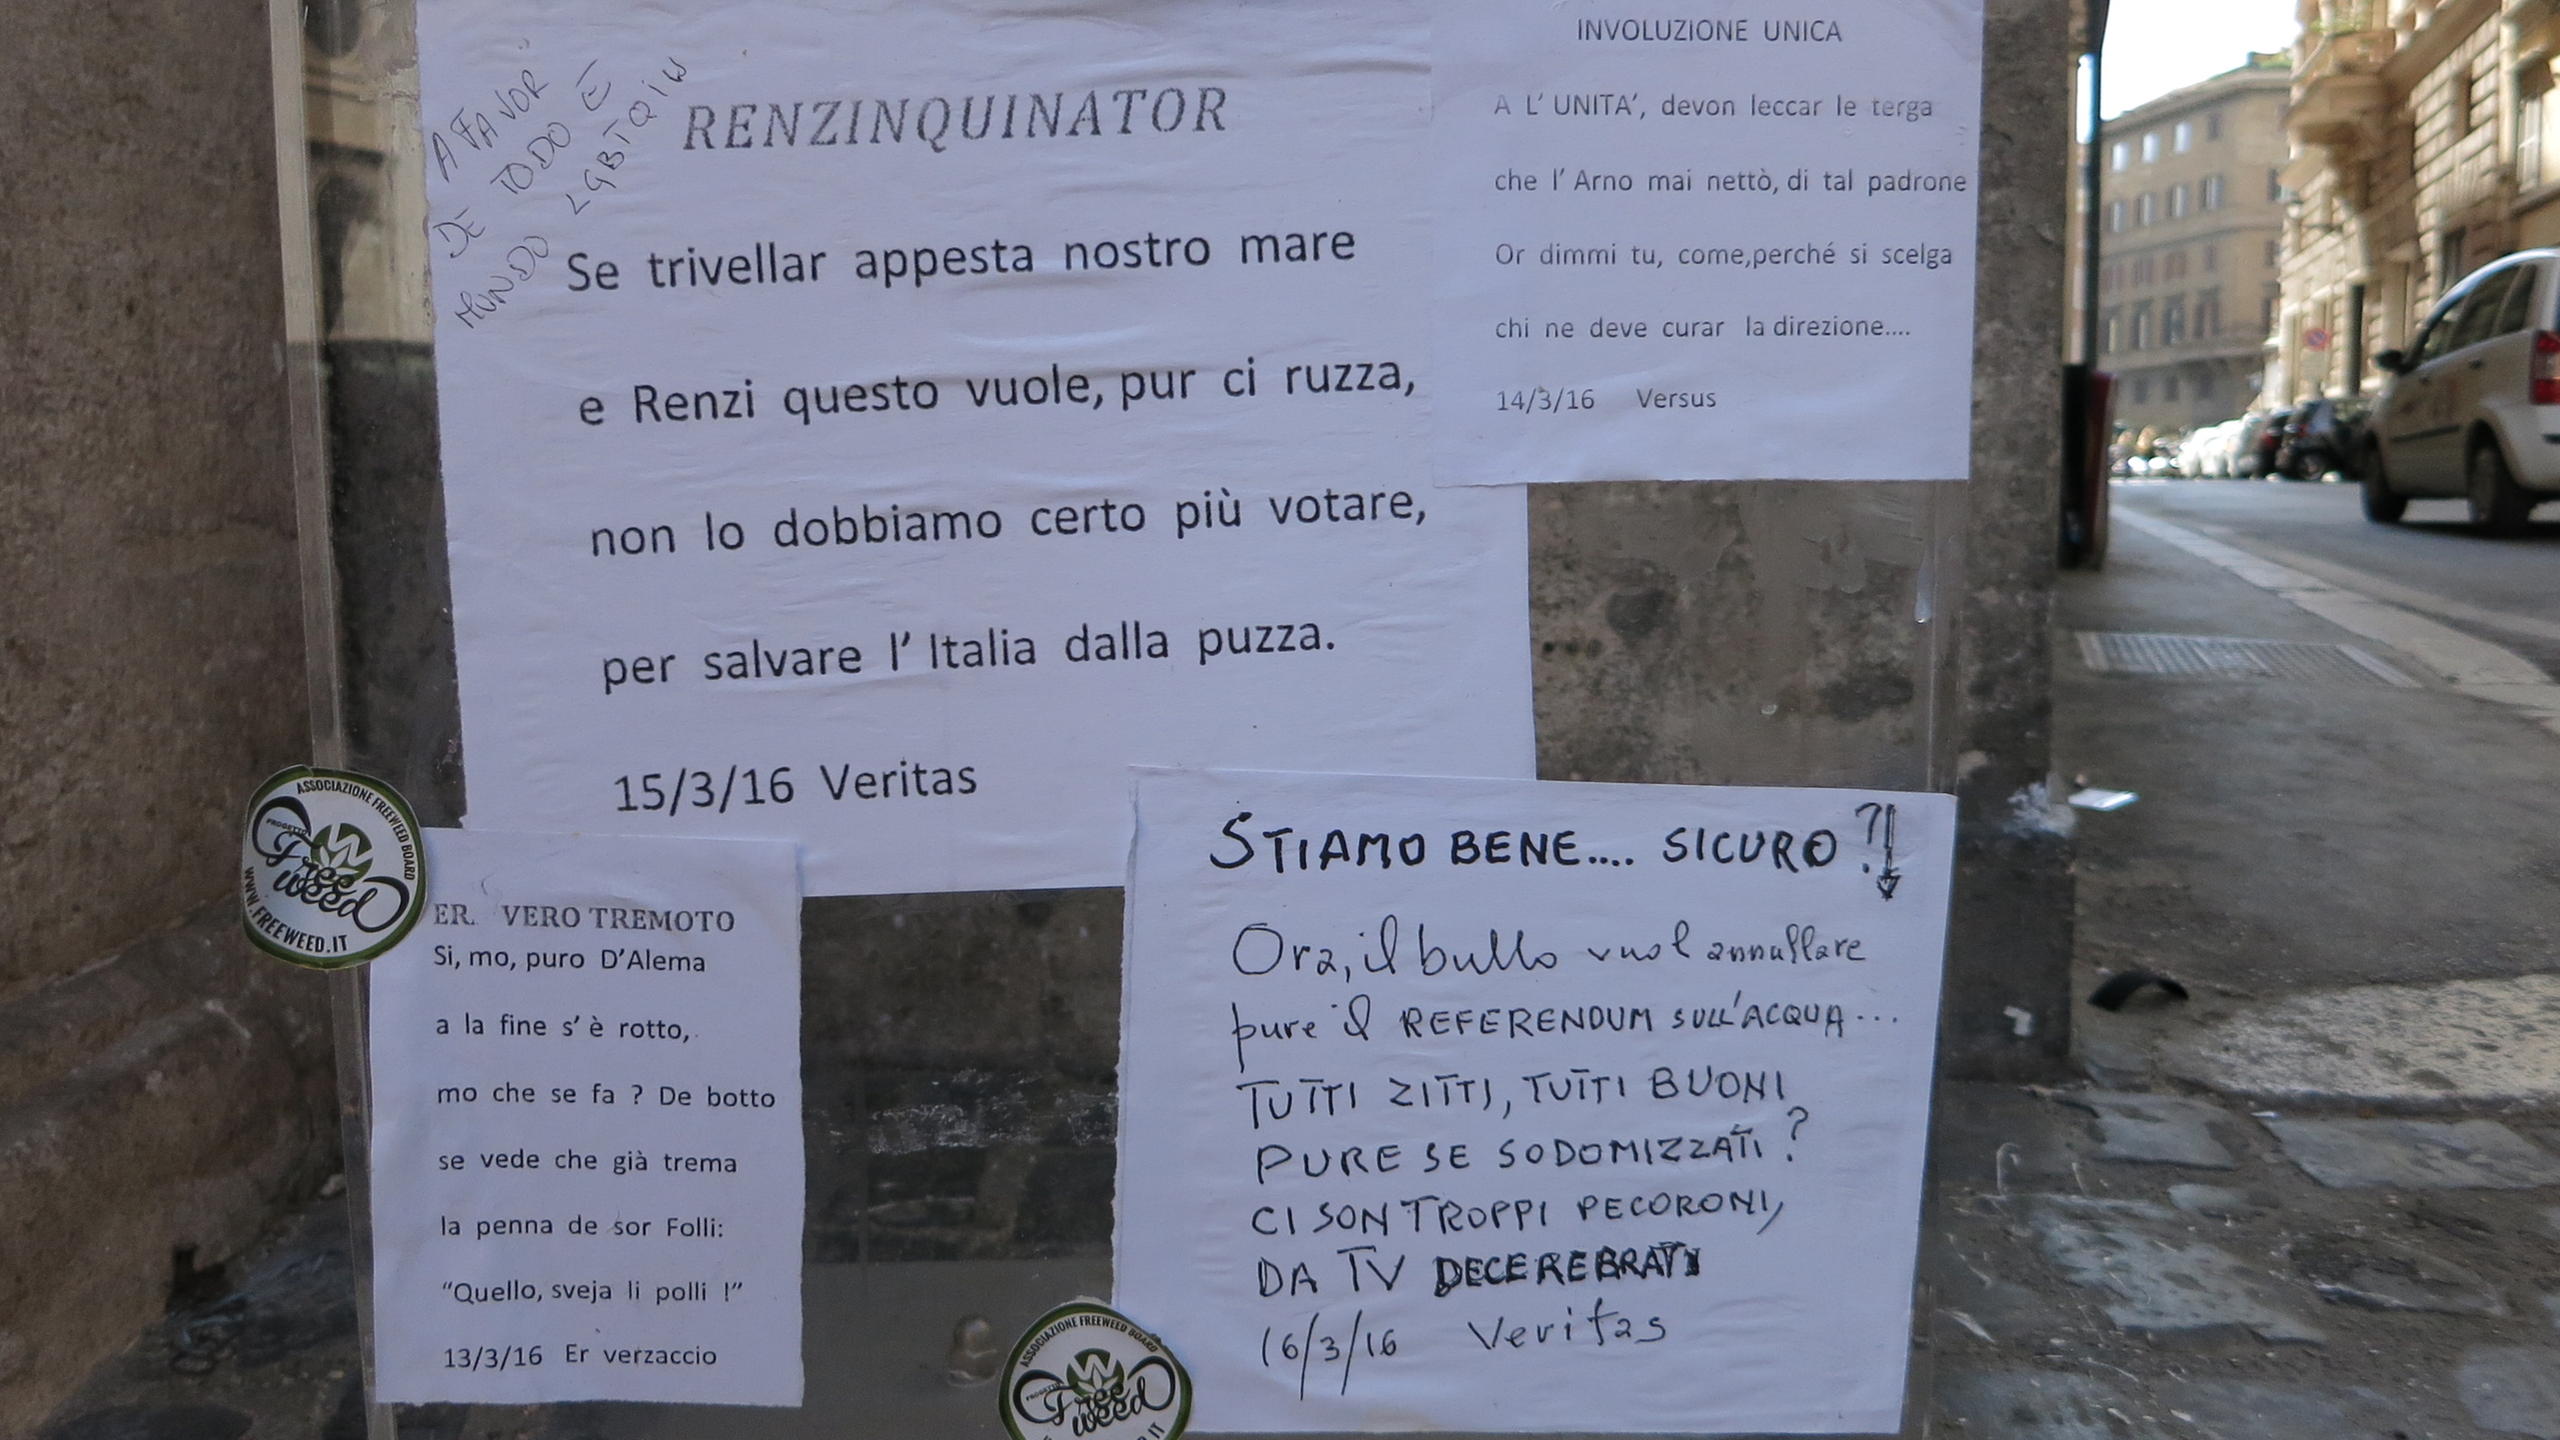 A FAVOR
DE TODO E
MUNDO LGBTQIW
RENZINQUINATOR
Se trivellar appesta nostro mare
e Renzi questo vuole, pur ci ruzza,
non lo dobbiamo certo più votare,
per salvare l' Italia dalla puzza.
15/3/16 Veritas
INVOLUZIONE UNICA
A L' UNITA', devon leccar le terga
che l' Arno mai nettò, di tal padrone
Or dimmi tu, come,perché si scelga
chi ne deve curar la direzione....
14/3/16 Versus
ASSOCIAZIONE FREEWEED BOARD
PROGETTO
Free
weed
WWW.FREEWEED.IT
ER. VERO TREMOTO
Si, mo, puro D'Alema
a la fine s' è rotto,
mo che se fa ? De botto
se vede che già trema
la penna de sor Folli:
"Quello, sveja li polli !"
13/3/16 Er verzaccio
STIAMO BENE.... SICURO ?!
Ora, il bullo vuol annullare
pure il REFERENDUM SULL'ACQUA...
TUTTI ZITTI, TUTTI BUONI
PURE SE SODOMIZZATI ?
CI SON TROPPI PECORONI,
DA TV DECEREBRATI
16/3/16 Veritas
ASSOCIAZIONE FREEWEED BOARD
PROGETTO
Free
weed